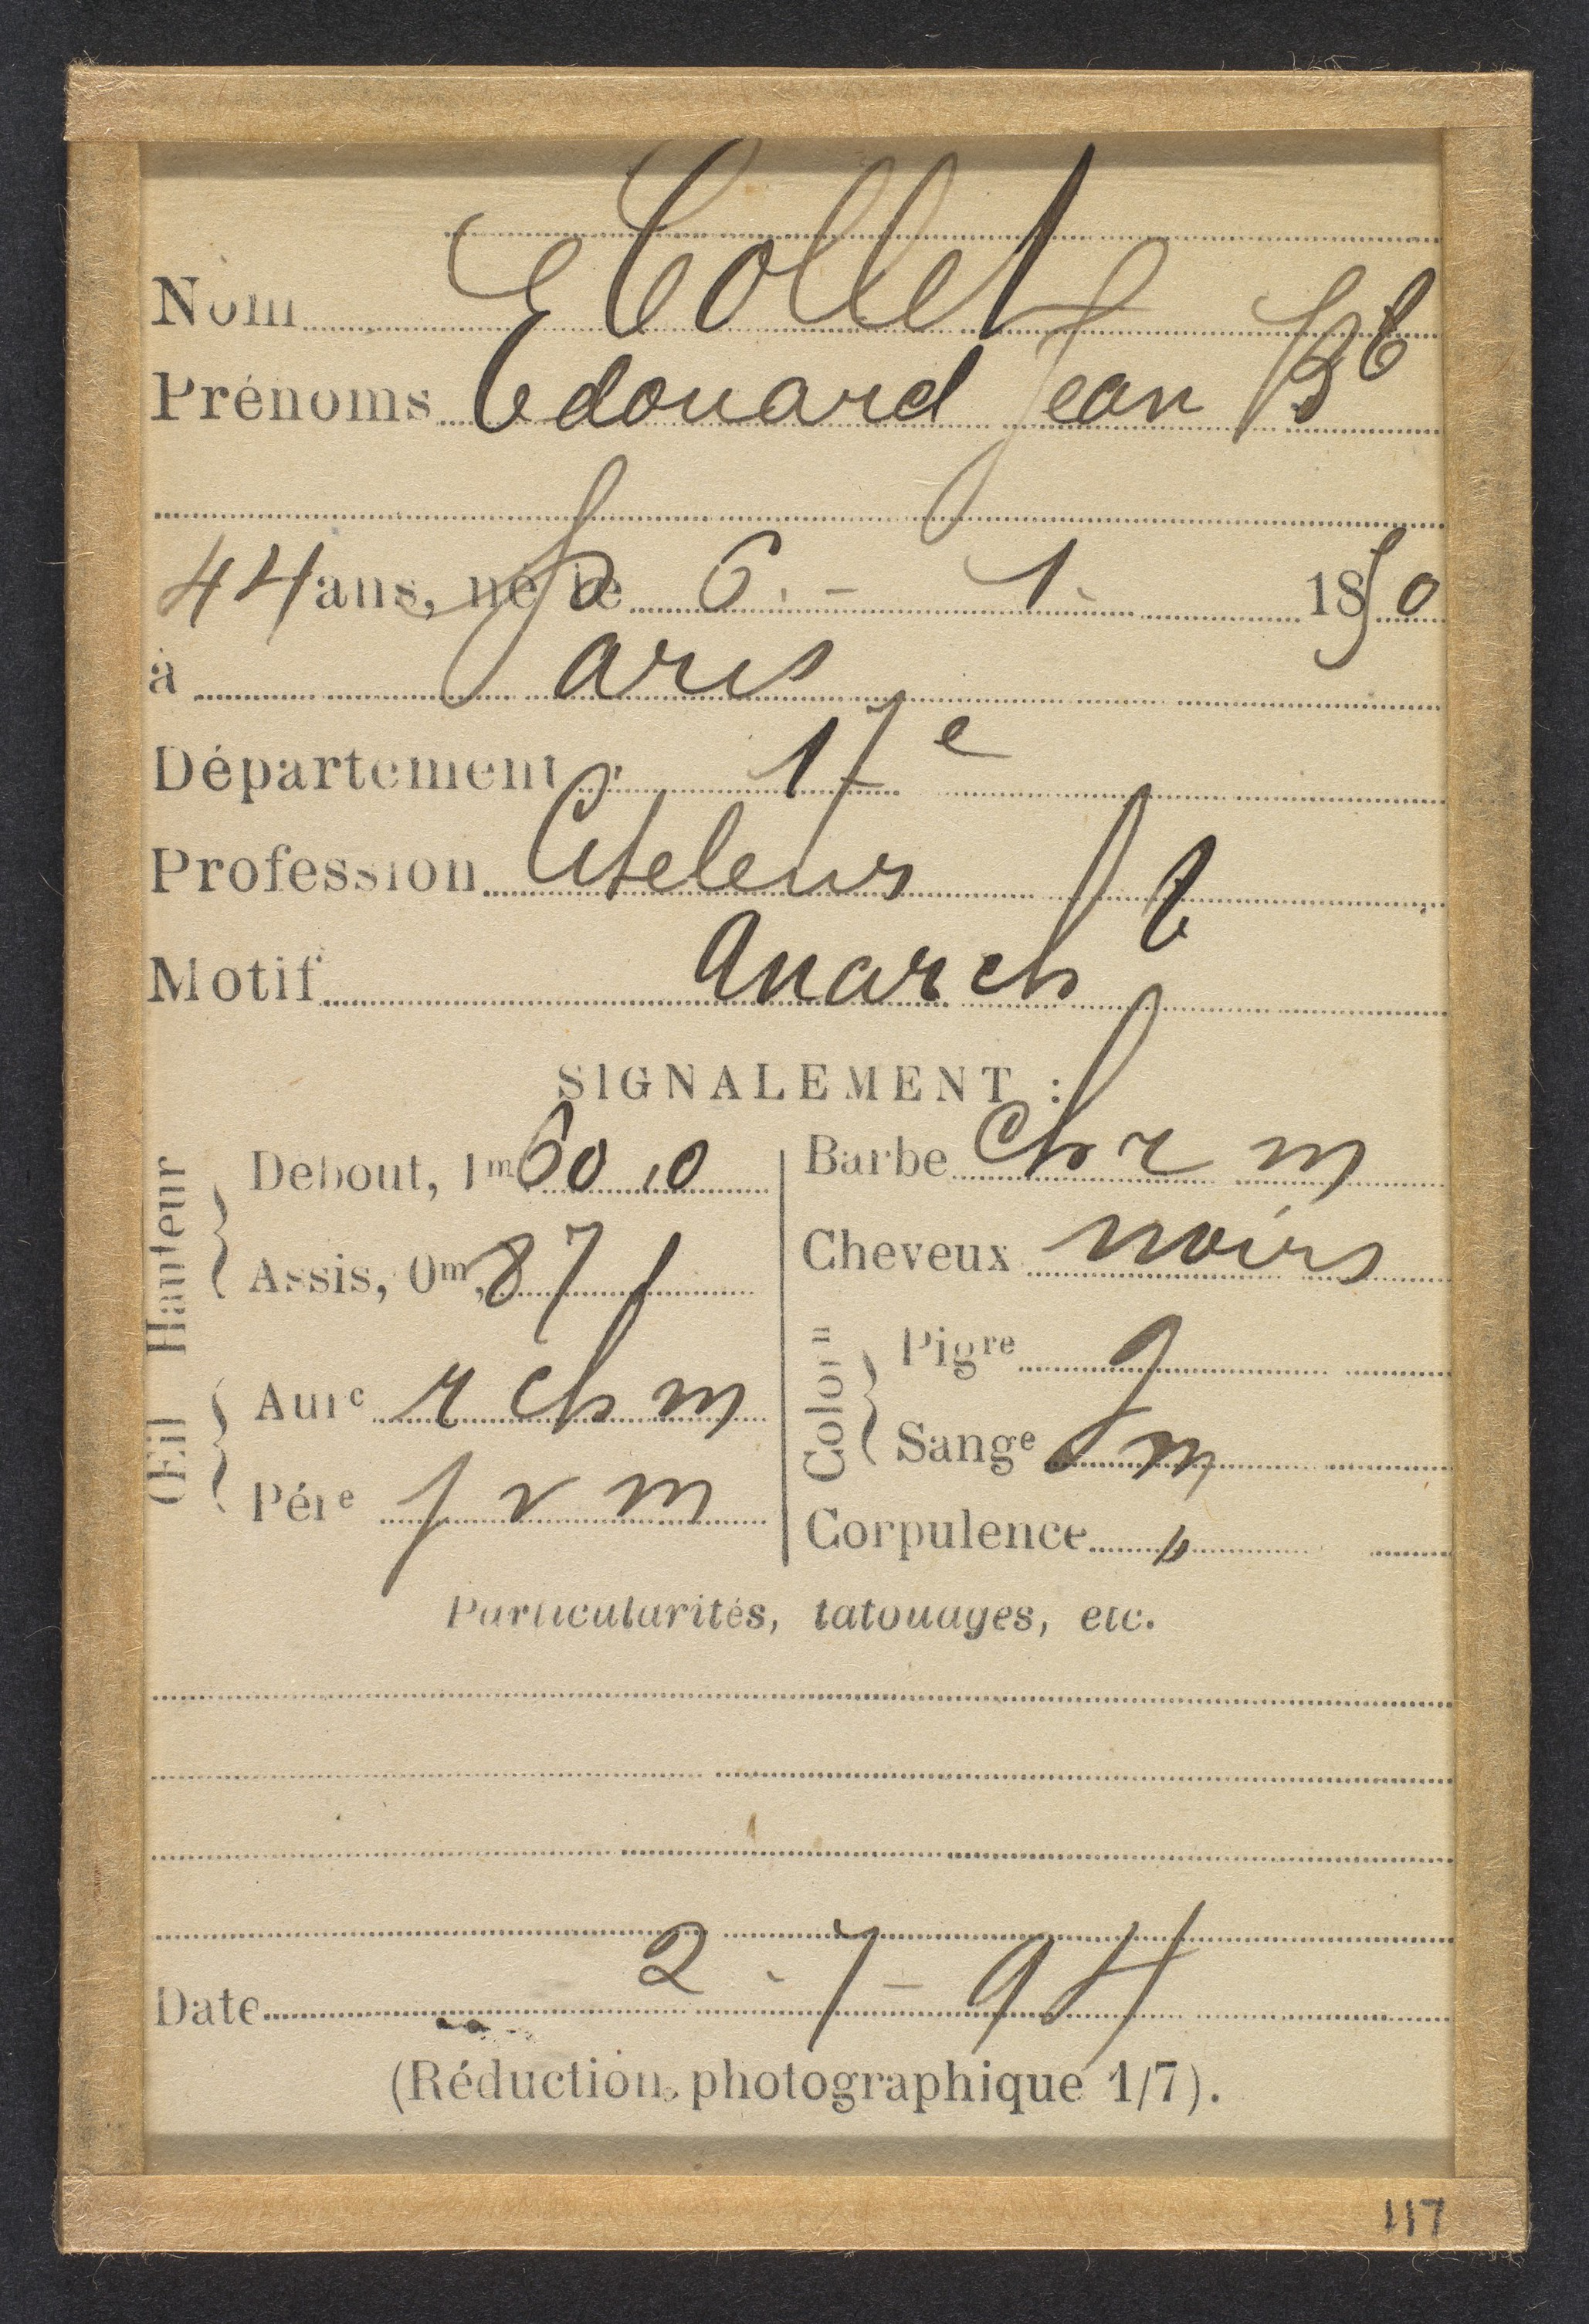 Nom Collet
Prénoms Edouard Jean Bte
44 ans, né le 6 - 1 - 1850
à Paris
Département 17e
Profession Ciseleur
Motif Anarchte
SIGNALEMENT :
Hauteur
Debout, 1m 60 ,0
Assis, 0m, 87,1
Œil
Aure r ch m
Pére v m
Barbe ch r m
Cheveux noirs
Colorn
Pigre g
Sange m
Corpulence "
Particularités, tatouages, etc.
Date 2 - 7 - 94
(Réduction photographique 1/7).
117